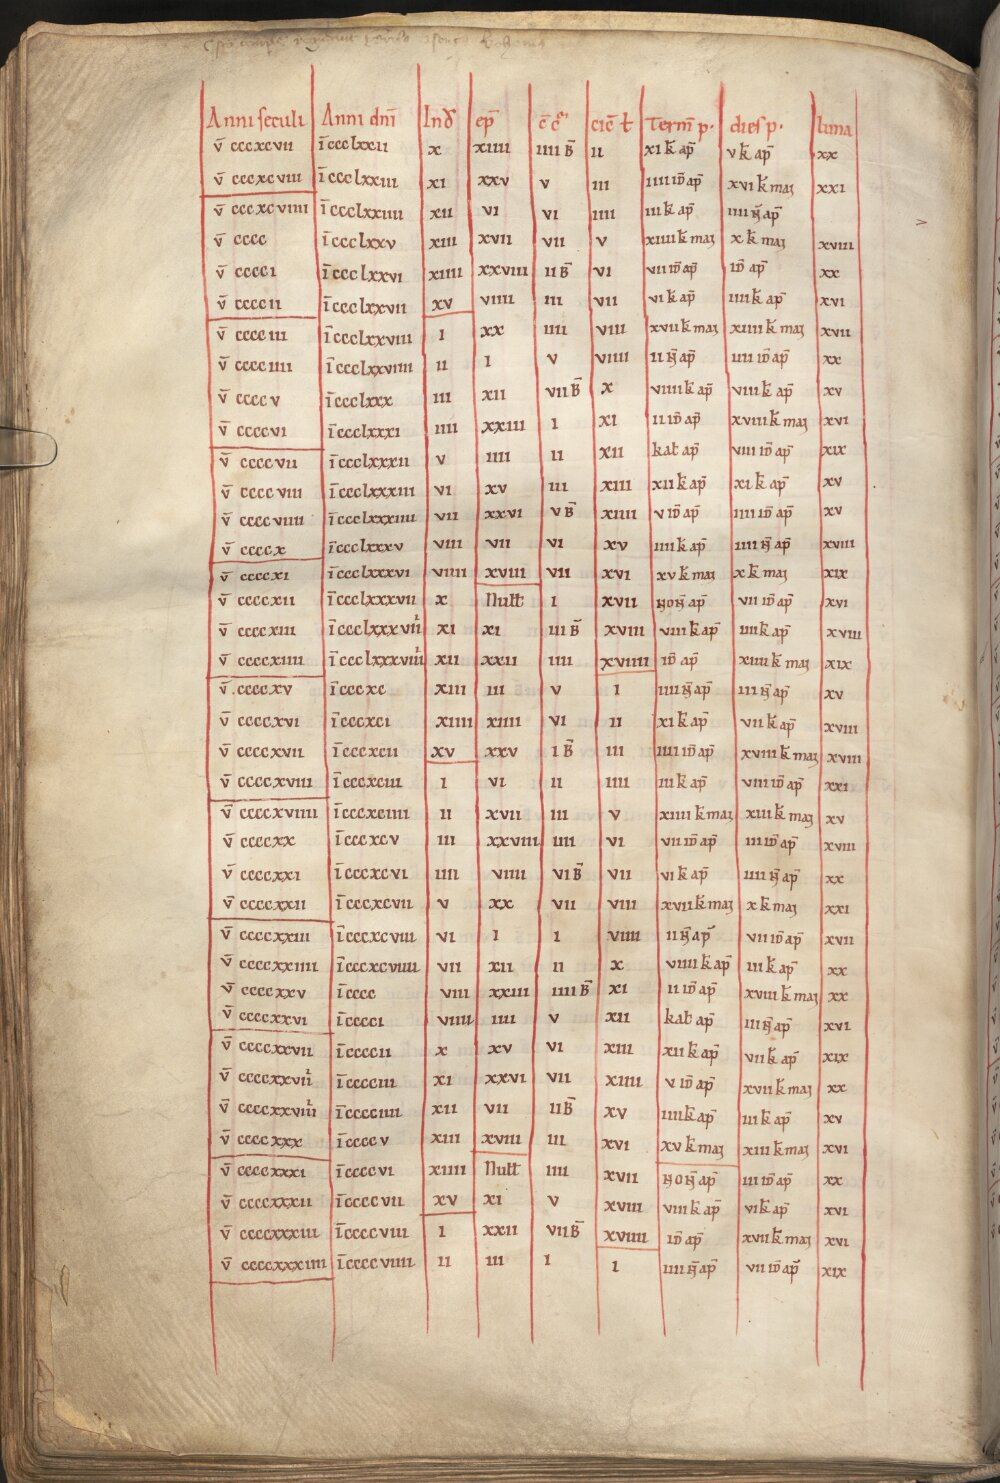 Anni seculi Anni dn̄i Ind ep̄ c̄ c̄ ciĉ ł Term̄ p· dies p· luna
v̄ cccxcvii ī ccclxxii x xiiii iiii B̄ ii xi k̄ ap̄ v k̄ ap̄ xx
v̄ cccxcviii ī ccclxxiii xi xxv v iii iiii id̄ ap̄ xvi k̄ maȝ xxi
v̄ cccxcviiii ī ccclxxiiii xii vi vi iiii iii k̄ ap̄ iiii n̄ ap̄
v̄ cccc ī ccclxxv xiii xvii vii v xiiii k̄ maȝ x k̄ maȝ xviii
v̄ cccci ī ccclxxvi xiiii xxviii ii B̄ vi vii id̄ ap̄ id̄ ap̄ xx
v̄ ccccii ī ccclxxvii xv viiii iii vii vi k̄ ap̄ iiii k̄ ap̄ xvi
v̄ cccciii ī ccclxxviii i xx iiii viii xvii k̄ maȝ xiiii k̄ maȝ xvii
v̄ cccciiii ī ccclxxviiii ii i v viiii ii n̄ ap̄ iiii id̄ ap̄ xx
v̄ ccccv ī ccclxxx iii xii vii B̄ x viiii k̄ ap̄ viii k̄ ap̄ xv
v̄ ccccvi ī ccclxxxi iiii xxiii i xi ii id̄ ap̄ xviii k̄ maȝ xvi
v̄ ccccvii ī ccclxxxii v iiii ii xii kał ap̄ viii id̄ ap̄ xix
v̄ ccccviii ī ccclxxxiii vi xv iii xiii xii k̄ ap̄ xi k̄ ap̄ xv
v̄ ccccviiii ī ccclxxxiiii vii xxvi v B̄ xiiii v id̄ ap̄ iiii id̄ ap̄ xv
v̄ ccccx ī ccclxxxv viii vii vi xv iiii k̄ ap̄ iiii n̄ ap̄ xviii
v̄ ccccxi ī ccclxxxvi viiii xviii vii xvi xv k̄ maȝ x k̄ maȝ xix
v̄ ccccxii ī ccclxxxvii x Nułł i xvii non̄ ap̄ vii id̄ ap̄ xvi
v̄ ccccxiii ī ccclxxxviii xi xi iii B̄ xviii viii k̄ ap̄ iiii k̄ ap̄ xviii
v̄ ccccxiiii ī ccclxxxviiii xii xxii iiii xviiii id̄ ap̄ xiiii k̄ maȝ xix
v̄ ccccxv ī cccxc xiii iii v i iiii n̄ ap̄ iii n̄ ap̄ xv
v̄ ccccxvi ī cccxci xiiii xiiii vi ii xi k̄ ap̄ vii k̄ ap̄ xviii
v̄ ccccxvii ī cccxcii xv xxv i B̄ iii iiii id̄ ap̄ xviii k̄ maȝ xviii
v̄ ccccxviii ī cccxciii i vi ii iiii iii k̄ ap̄ viii id̄ ap̄ xxi
v̄ ccccxviiii ī cccxciiii ii xvii iii v xiiii k̄ maȝ xiii k̄ maȝ xv
v̄ ccccxx ī cccxcv iii xxviii iiii vi vii id̄ ap̄ iii id̄ ap̄ xviii
v̄ ccccxxi ī cccxcvi iiii viiii vi B̄ vii vi k̄ ap̄ iiii n̄ ap̄ xx
v̄ ccccxxii ī cccxcvii v xx vii viii xvii k̄ maȝ x k̄ maȝ xxi
v̄ ccccxxiii ī cccxcviii vi i i viiii ii n̄ ap̄ vii id̄ ap̄ xvii
v̄ ccccxxiiii ī cccxcviiii vii xii ii x viiii k̄ ap̄ iii k̄ ap̄ xx
v̄ ccccxxv ī cccc viii xxiii iiii B̄ xi ii id̄ ap̄ xviii k̄ maȝ xx
v̄ ccccxxvi ī cccci viiii iiii v xii kał ap̄ iii n̄ ap̄ xvi
v̄ ccccxxvii ī ccccii x xv vi xiii xii k̄ ap̄ vii k̄ ap̄ xix
v̄ ccccxxviii ī cccciii xi xxvi vii xiiii v id̄ ap̄ xvii k̄ maȝ xx
v̄ ccccxxviiii ī cccciiii xii vii ii B̄ xv iiii k̄ ap̄ iii k̄ ap̄ xv
v̄ ccccxxx ī ccccv xiii xviii iii xvi xv k̄ maȝ xiii k̄ maȝ xvi
v̄ ccccxxxi ī ccccvi xiiii Nułł iiii xvii non̄ ap̄ iii id̄ ap̄ xx
v̄ ccccxxxii ī ccccvii xv xi v xviii viii k̄ ap̄ vi k̄ ap̄ xvi
v̄ ccccxxxiii ī ccccviii i xxii vii B̄ xviiii id̄ ap̄ xvii k̄ maȝ xvi
v̄ ccccxxxiiii ī ccccviiii ii iii i i iiii n̄ ap̄ vii id̄ ap̄ xix